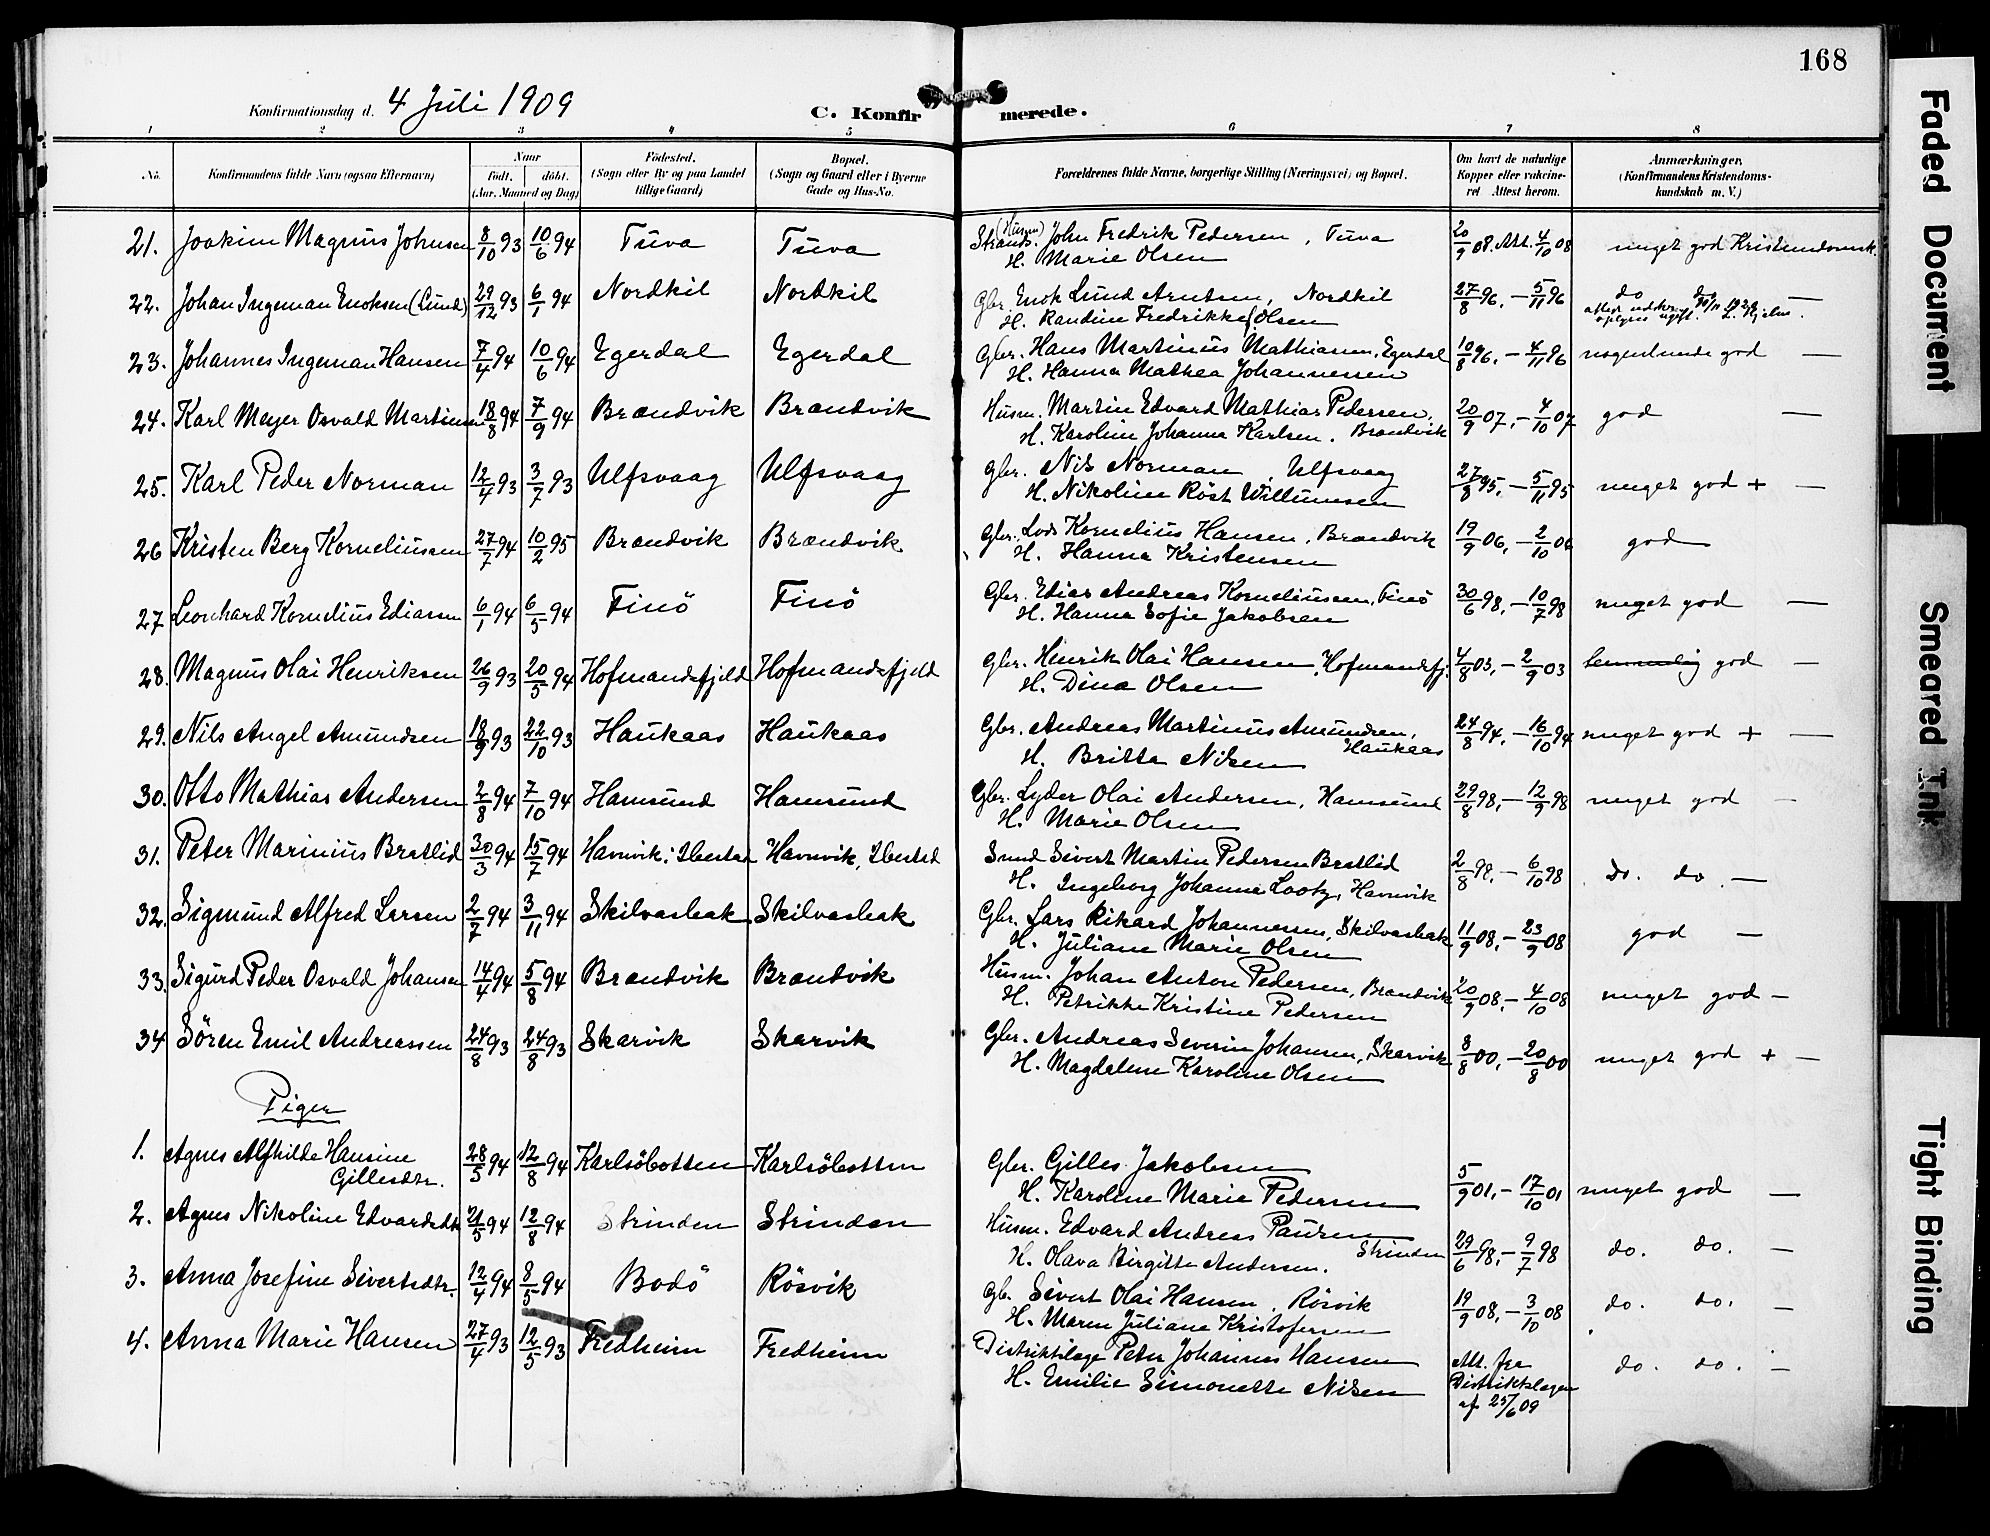 168
Konfirmationsdag d. 4 Juli 1909
C. Konfirmerede.
1 2 3 4 5 6 7 8
No.
Konfirmandens fulde Navn (ogsaa Efternavn)
Naar
født. døbt.
(Aar, Maaned og Dag)
Fødested.
(Sogn eller By og paa Landet
tillige Gaard)
Bopæl.
(Sogn og Gaard eller i Byerne
Gade og Hus-No.
Forældrenes fulde Navne, borgerlige Stilling (Næringsvei) og Bopæl.
Om havt de naturlige
Kopper eller vakcine-
ret Attest herom.
Anmærkninger,
(Konfirmandens Kristendoms-
kundskab m. V.)
21. Joakim Magnus Johnsen 8/10 93 10/6 94 Tuva Tuva (Husm) Strands. John Fredrik Pedersen, Tuva 20/9 08. Att. 4/10 08 meget god Kristendomsk.
H. Marie Olsen
22. Johan Ingeman Enoksen (Lund) 29/12 93 6/1 94 Nordkil Nordkil Gbr. Enok Lund Arntsen, Nordkil 27/8 96, – 5/11 96 do do —
H. Randine Fredrikke Olsen
23. Johannes Ingeman Hansen 7/4 94 10/6 94 Egerdal Egerdal Gbr. Hans Martinus Mathiassen, Egerdal 10/8 96, – 4/11 96 nogenlunde god —
H. Hanna Mathea Johannessen
24. Karl Meyer Osvald Martinsen 18/8 94 7/9 94 Brændvik Brændvik Husm. Martin Edvard Mathias Pedersen, 20/9 07, – 4/10 07 god —
H. Karoline Johanna Karlsen. Brændvik
25. Karl Peder Norman 12/4 93 3/7 93 Ulfsvaag Ulfsvaag Gbr. Nils Norman Ulfsvaag 27/8 95, – 5/11 95 meget god + —
H. Nikoline Röst Willumsen
26 Kristen Berg Korneliussen 27/7 94 10/2 95 Brændvik Brændvik Gbr. Lods Kornelius Hansen, Brændvik 19/9 06, – 2/10 06 god
H. Hanna Kristensen
27 Leonhard Kornelius Ediassen 6/1 94 6/5 94 Finö Finö Gbr. Edias Andreas Korneliussen, Finö 30/6 98, – 10/7 98 meget god —
H. Hanna Sofie Jakobsen
28. Magnus Olai Henriksen 26/9 93 20/5 94 Hofmandsfjeld Hofmandsfjeld Gbr. Henrik Olai Hansen, Hofmandsfj. 4/8 03, – 2/9 03 temmelig god —
H. Dina Olsen
29. Nils Angel Amundsen 18/9 93 22/10 93 Haukaas Haukaas Gbr. Andreas Martinus Amundsen, 24/8 94, – 16/10 94 meget god + —
Haukaas
H. Britta Nilsen
30. Otto Mathias Andersen 2/8 94 7/10 94 Hamsund Hamsund Gbr. Lyder Olai Andersen, Hamsund 29/8 98, – 12/9 98 meget god —
H. Marie Olsen
31. Peter Marinius Bratlid 30/3 94 15/7 94 Havnvik i Ibestad Havnvik, Ibestad Smed Sivert Martin Pedersen Bratlid 2/8 98, – 6/10 98 do. do. —
H. Ingeborg Johanna Lootz, Havnvik
32. Sigmund Alfred Larsen 2/7 94 3/11 94 Skilvasbak Skilvasbak Gbr. Lars Rikard Johannessen, Skilvasbak 11/9 08, – 23/9 08 god —
H. Juliane Marie Olsen
33. Sigurd Peder Osvald Johansen 14/4 94 5/8 94 Brændvik Brændvik Husm. Johan Anton Pedersen, Brændvik 20/9 08, – 4/10 08 meget god –
H. Petrikke Kristine Pedersen
34 Sören Emil Andreassen 24/8 93 24/8 93 Skarvik Skarvik Gbr. Andreas Severin Johansen, Skarvik 8/8 00, – 20/8 00 meget god + –
H. Magdelene Karoline Olsen
Piger
1. Agnes Alfhilde Hansine 28/5 94 12/8 94 Karlsöbotten Karlsöbotten Gbr. Gilles Jakobsen 5/9 01, – 17/10 01 meget god —
Gillesdtr. H. Karoline Marie Pedersen
2. Agnes Nikoline Edvardsdtr 21/5 94 12/8 94 Strinden Strinden Husm. Edvard Andreas Paulsen 29/6 98, – 9/7 98 do. do. —
H. Olava Birgitte Andersen. Strinden
3. Anna Josefine Sivertsdtr. 12/4 94 8/5 94 Bodö Rösvik Gbr. Sivert Olai Hansen, Rösvik 19/9 08, – 3/10 08 do. do. —
H. Maren Juliane Kristofersen
4. Anna Marie Hansen 27/4 93 12/5 93 Fredheim Fredheim Distriktslæge Peter Johannes Hansen Att. fra do. do. —
H. Emilie Simonette Nilsen Distriktslægen
af 25/6 09
Faded Document
Smeared Ink
Tight Binding